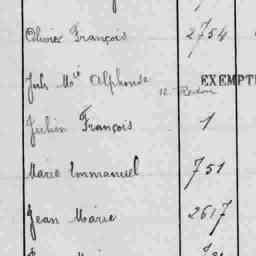 Olivier François 2754
Jules Mie Alphonse EXEMPT
Julien François 1
Marie Emmanuel 751
Jean Marie 2617